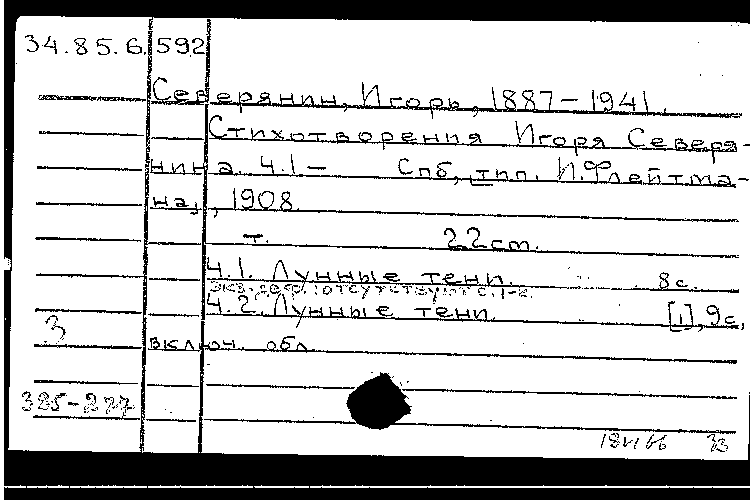 34.85.6.592
Северянин, Игорь, 1887-1941.
Стихотворения Игоря Северя-
нина. Ч.1- Спб, тип. И.Флейтма-
на, 1908.
т. 22cm.
Ч.1. Лунные тени. 8с.
экз. деф.: отсутствуют с. 1-2.
Ч.2. Лунные тени. [1], 9с,
3 включ. обл.
325-227
33